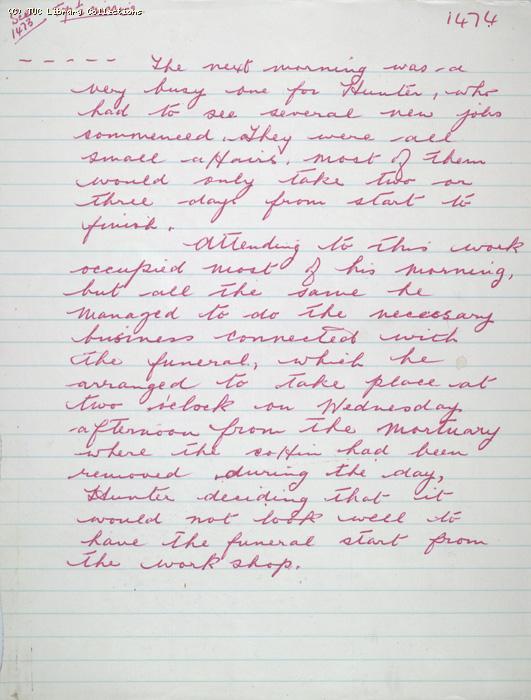 (C) TUC Library Collections
1473
1474
- - - - - The next morning was a
very busy one for Hunter, who
had to see several new jobs
commenced. They were all
small affairs. most of them
would only take two or
three days from start to
finish.
Attending to this work
occupied most of his morning,
but all the same he
managed to do the necessary
business connected with
the funeral, which he
arranged to take place at
two o'clock on Wednesday
afternoon from the mortuary
where the coffin had been
removed during the day,
Hunter deciding that it
would not look well to
have the funeral start from
the work shop.